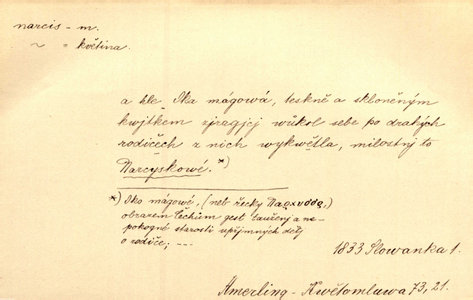 narcis - m.
~ = květina.
a hle Oka mágowá, teskně a skloněným
kwjtkem zjragjcj wůkol sebe po drahých
rodičech z nich wykwětla, milostnj to
Narcyskowé. *)
*) Oko mágowé, (neb řecky
obrazem Čechům gest taužení a ne-
pokogné starosti upřjmných dětj
o rodiče; ---
1833 Slowanka 1.
Amerling - Kwětomluwa 73, 21.